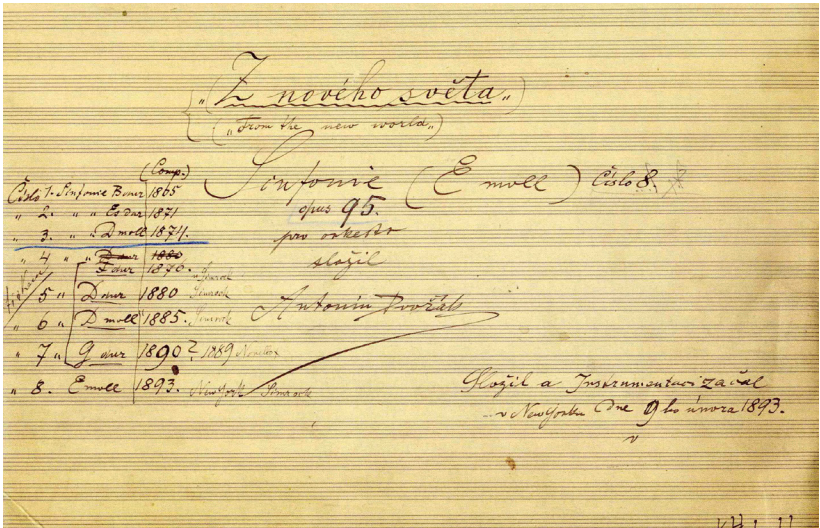 „Z nového světa„
(„From the new world„)
Sinfonie (E moll) Číslo 8.
opus 95.
pro orkestr
složil
Antonín Dvořák
(Comp.)
Číslo 1. Sinfonie B dur 1865
„ 2. „ „ Es dur 1871
„ 3. „ „ D moll 1874.
„ 4 „ D dur 1880
F dur 1870. Simrock
„ 5 „ D dur 1880 Simrock
„ 6 „ D moll 1885. Simrock
„ 7 „ G dur 1890? 1889 Novello
„ 8. E moll 1893. New York Simrock
Složil a Instrumentaci začal
v New Yorku dne 9ho února 1893.